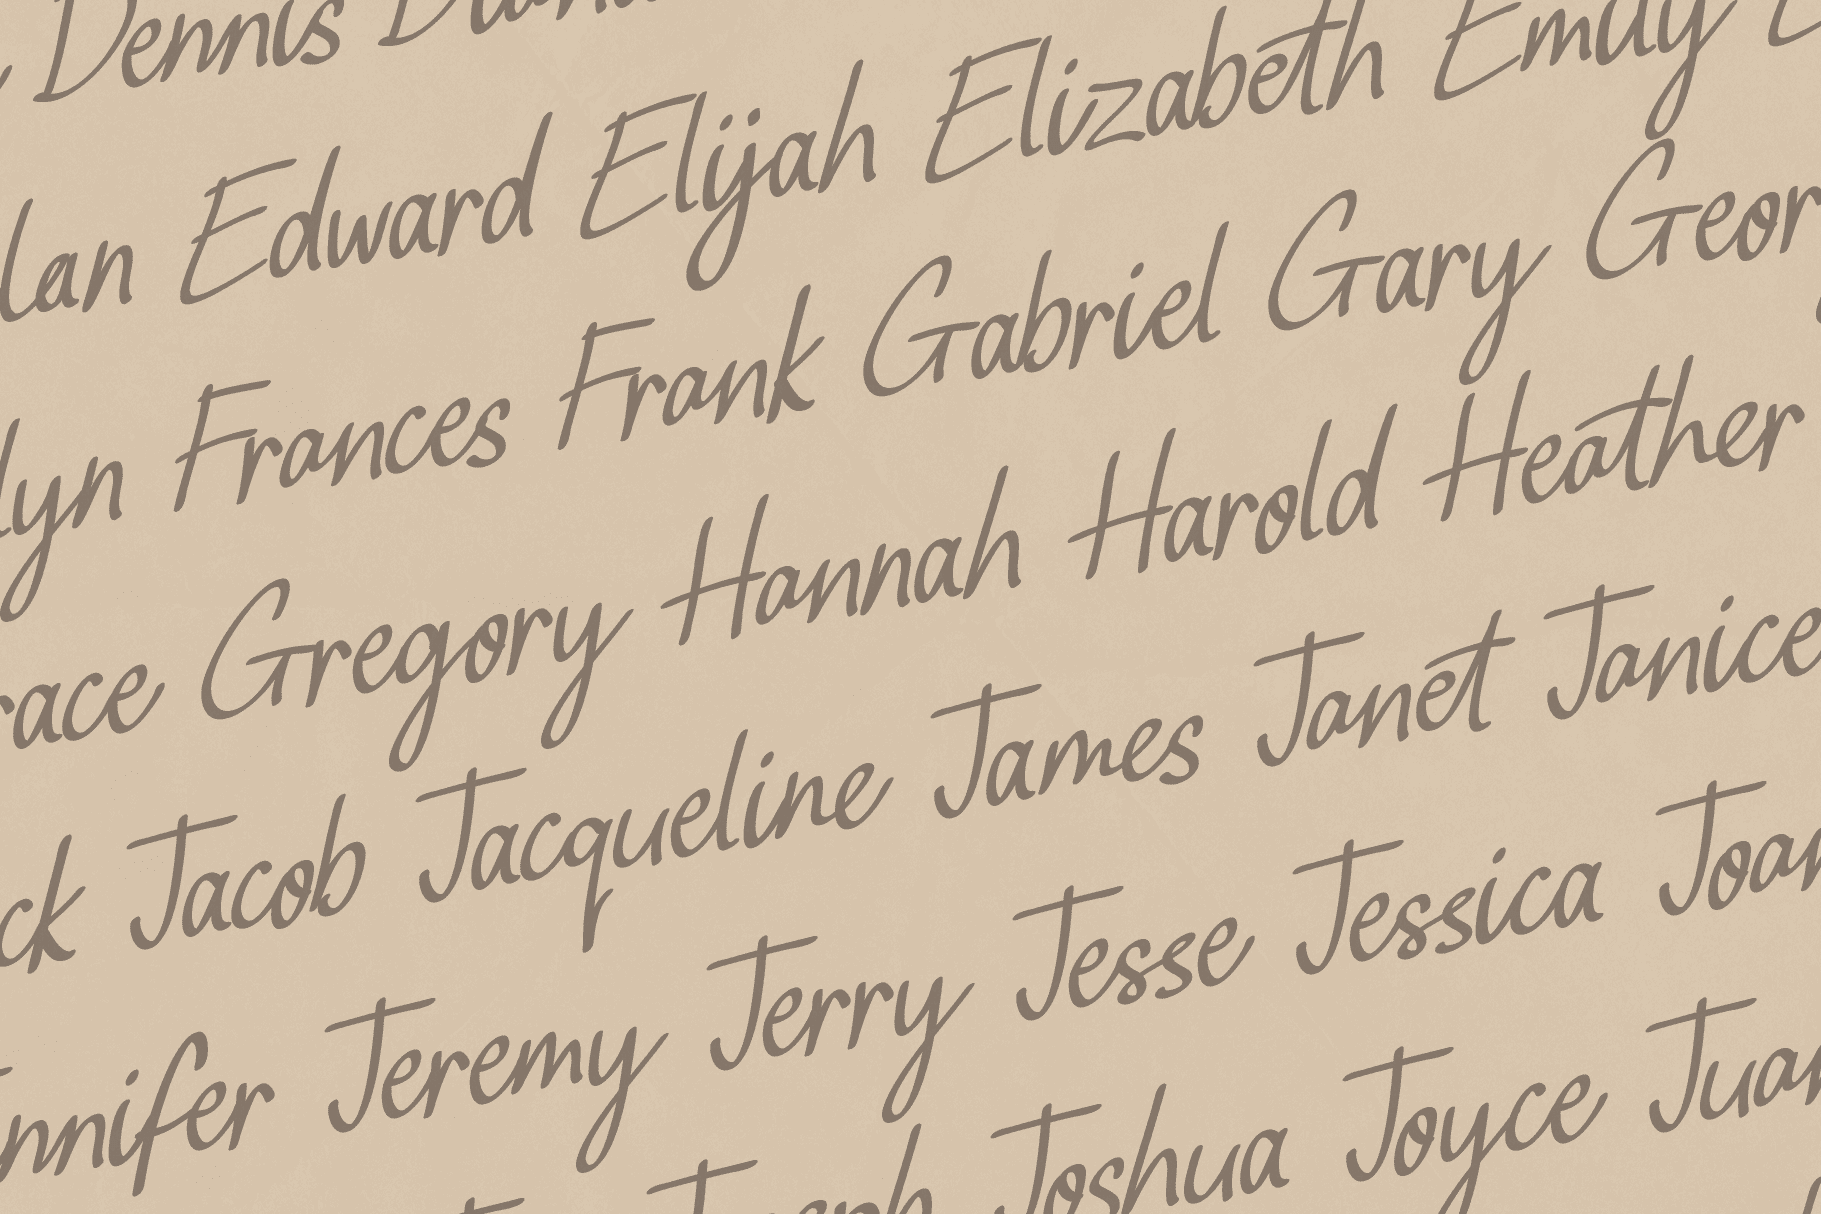 Dennis
Edward Elijah Elizabeth Emily
Frances Frank Gabriel Gary
Gregory Hannah Harold Heather
Jacob Jacqueline James Janet Janice
Jeremy Jerry Jesse Jessica
Joshua Joyce